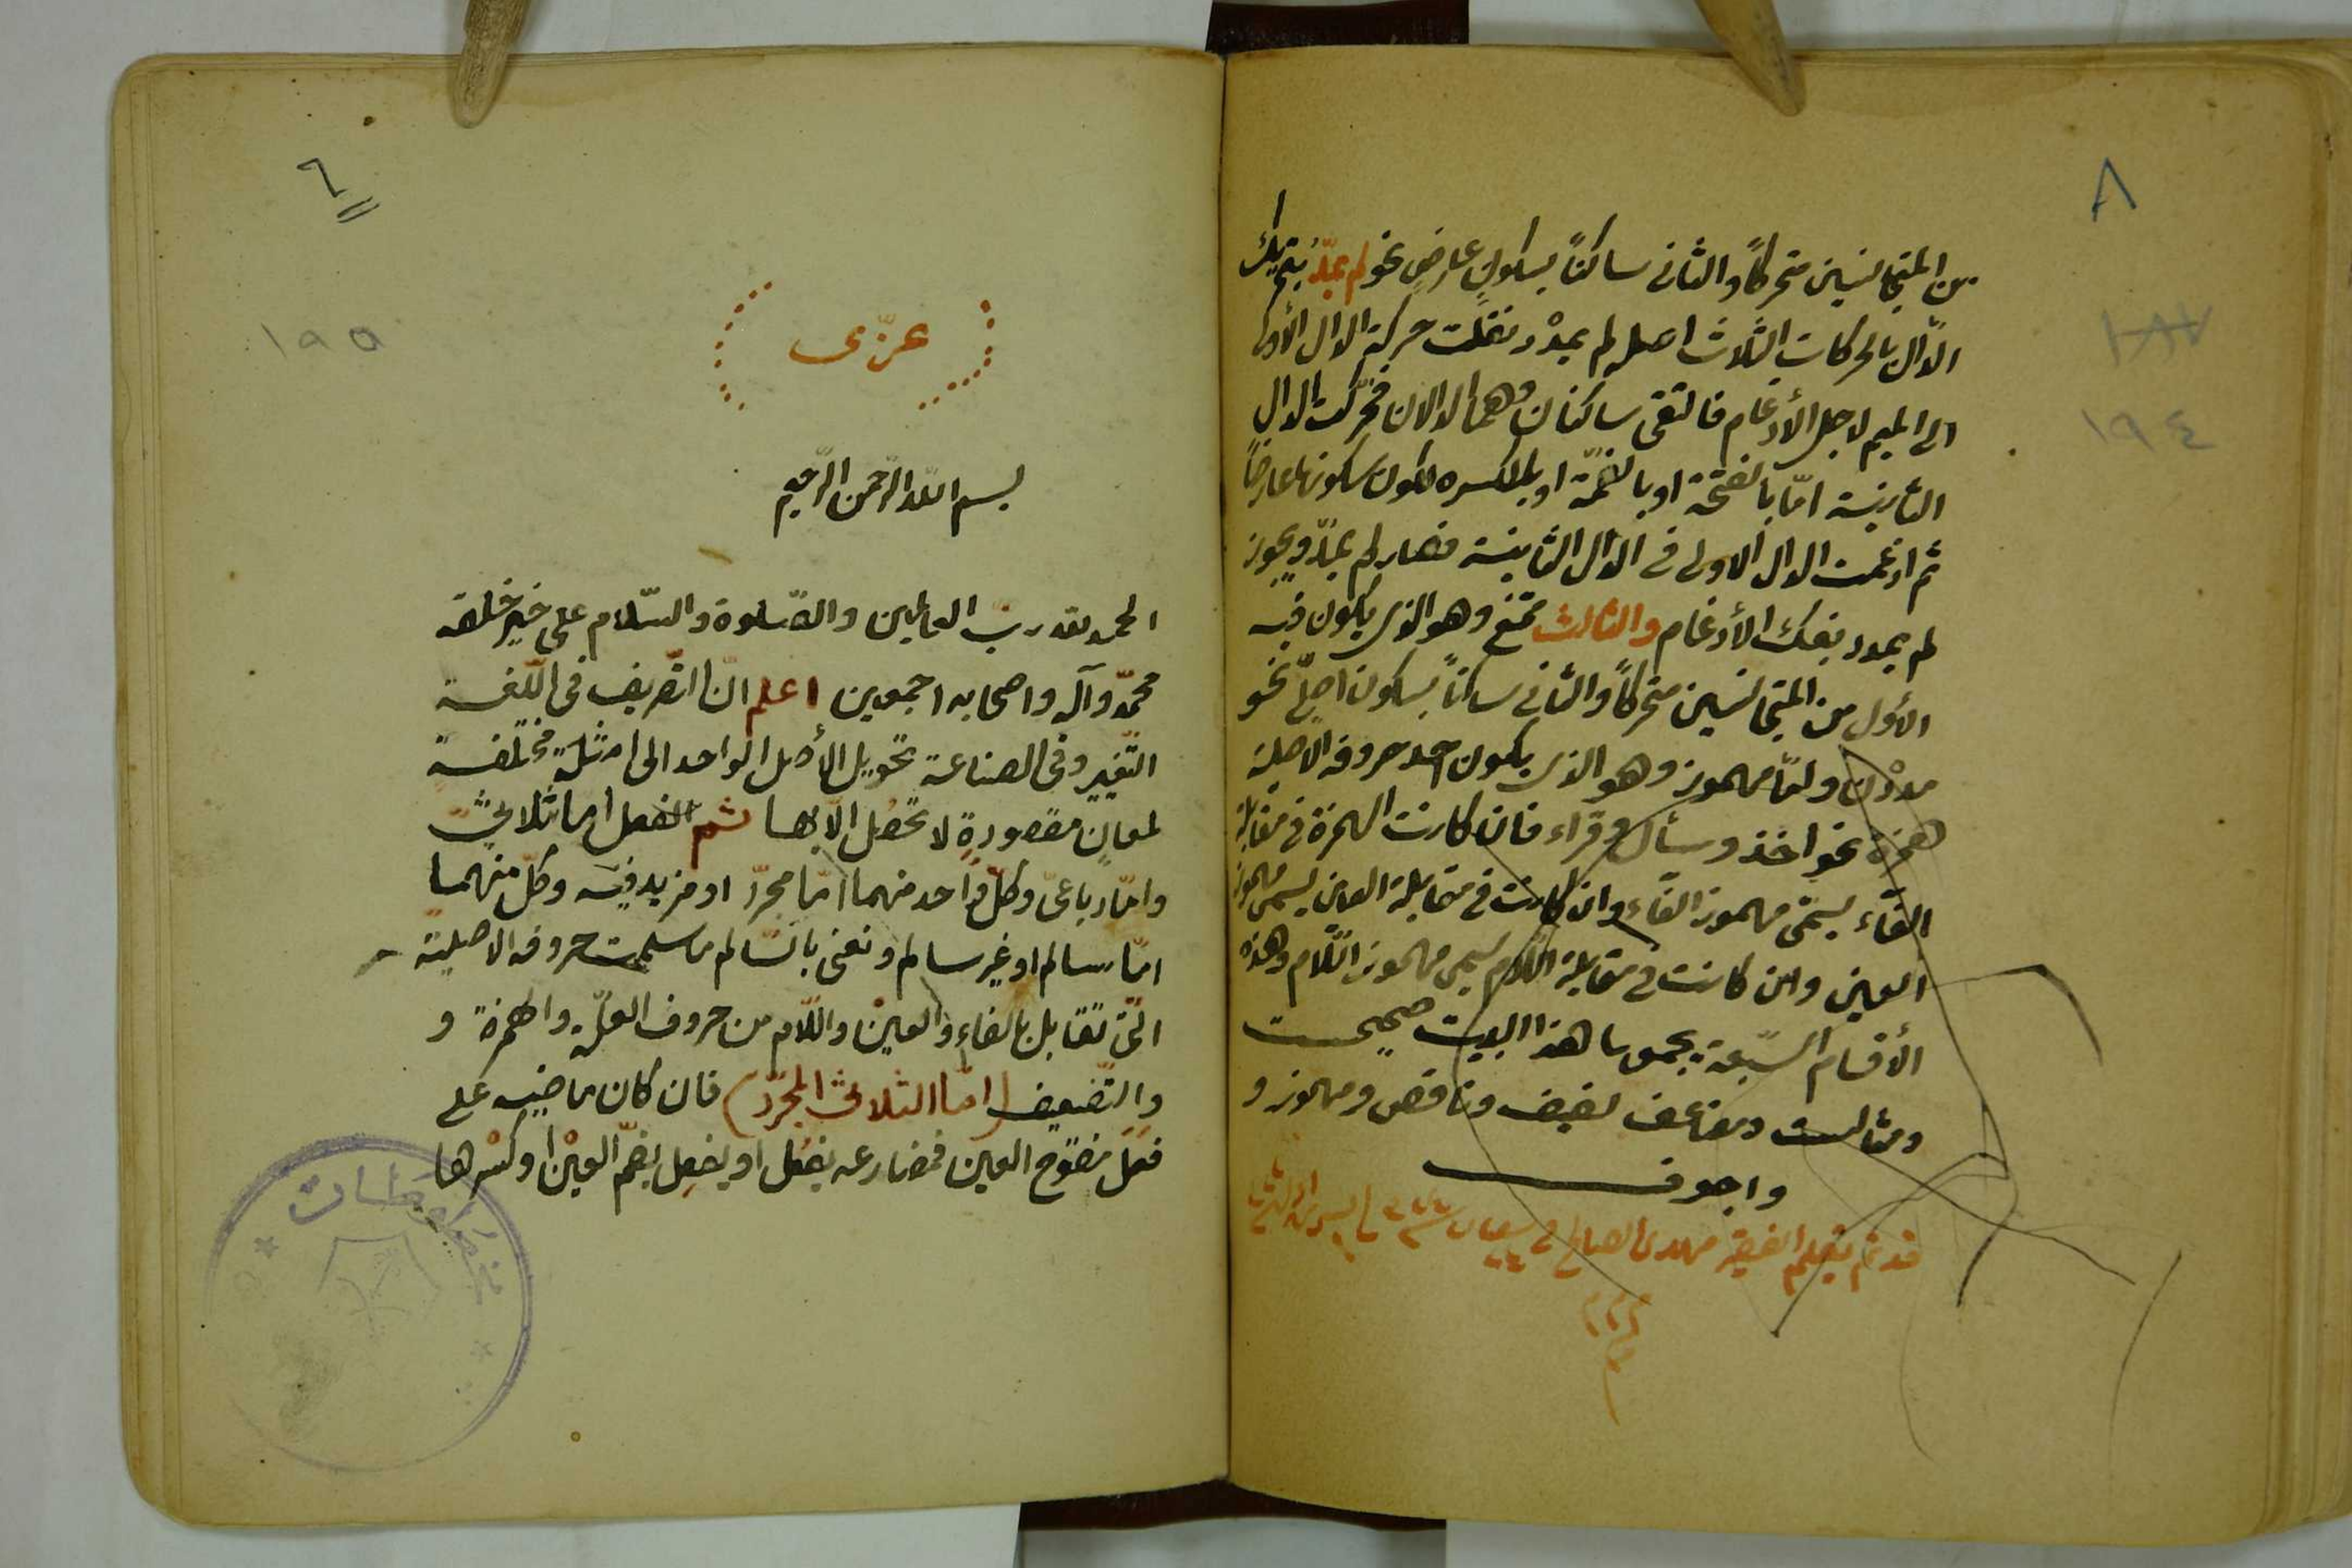 ٨
١٨٧
١٩٤
من المتجانسين متحركاً والثانى ساكناً بسكونٍ عارضٍ نحو لم يمدّ بتحريك
الدّال بالحركات الثلاث اصله لم يمدْد نقلت حركة الدال الأولى
الى الميم لاجل الأدغام فالتقى ساكنان وهما الدالان فحرّكت الدال
الثانية امّا بالفتحة او بالضمّة او بالكسره لكون سكونها عارضاً
ثم ادغمت الدال الاولى فى الدّال الثانية فصار لم يمدّ ويجوز
لم يمدد بفك الأدغام والثالث ممتنع وهو الذى يكون فيه
الأول من المتجانسين متحركاً والثانى ساكناً بسكون اصلىّ نحو
مددْن وامّا مهموز وهو الذى يكون احد حروفه الاصلية
همزة نحو اخذ وسأل وقراء فان كانت الهمزة فى مقابلة
الفآء يسمّى مهموز الفآء وان كانت فى مقابلة العين يسمى مهموز
العين وان كانت فى مقابلة اللّام يسمى مهموز اللّام وهذه
الأقسام السّبعة يجمعها هذا البيت صحيحست
ومثالست ومضاعف لفيف وناقص ومهموز و
واجوف
قد تم بقلم الفقير مهدى الصالح فى شعبان
٦
١٩٥
عزّى
بسم اللّه الرّحمن الرّحيم
الحمد للّه ربّ العالمين والصّلوة والسّلام على خير خلقه
محمّد وآله واصحابه اجمعين اعلم انّ التّصريف فى اللّغة
التّغيير وفى الصناعة تحويل الأصل الواحد الى امثلةٍ مختلفة
لمعانٍ مقصودةٍ لا تحصُل الّا بها ثم الفعل اما ثلاثىّ
وامّا رباعىّ وكلّ واحد منهما امّا مجرّد او مزيد فيه وكلّ منهما
امّا سالم او غير سالم ونعنى بالسّالم ما سلمت حروفه الاصلية
الّتى تقابل بالفاءِ والعيْن واللّام من حروف العلّة والهمزة و
والتّضعيف (امّا الثلاثى المجرّد) فان كان ماضيه على
فعَل مفتوح العين فمضارعه يفعُل او يفعِل بضمّ العيْن او كسْرها